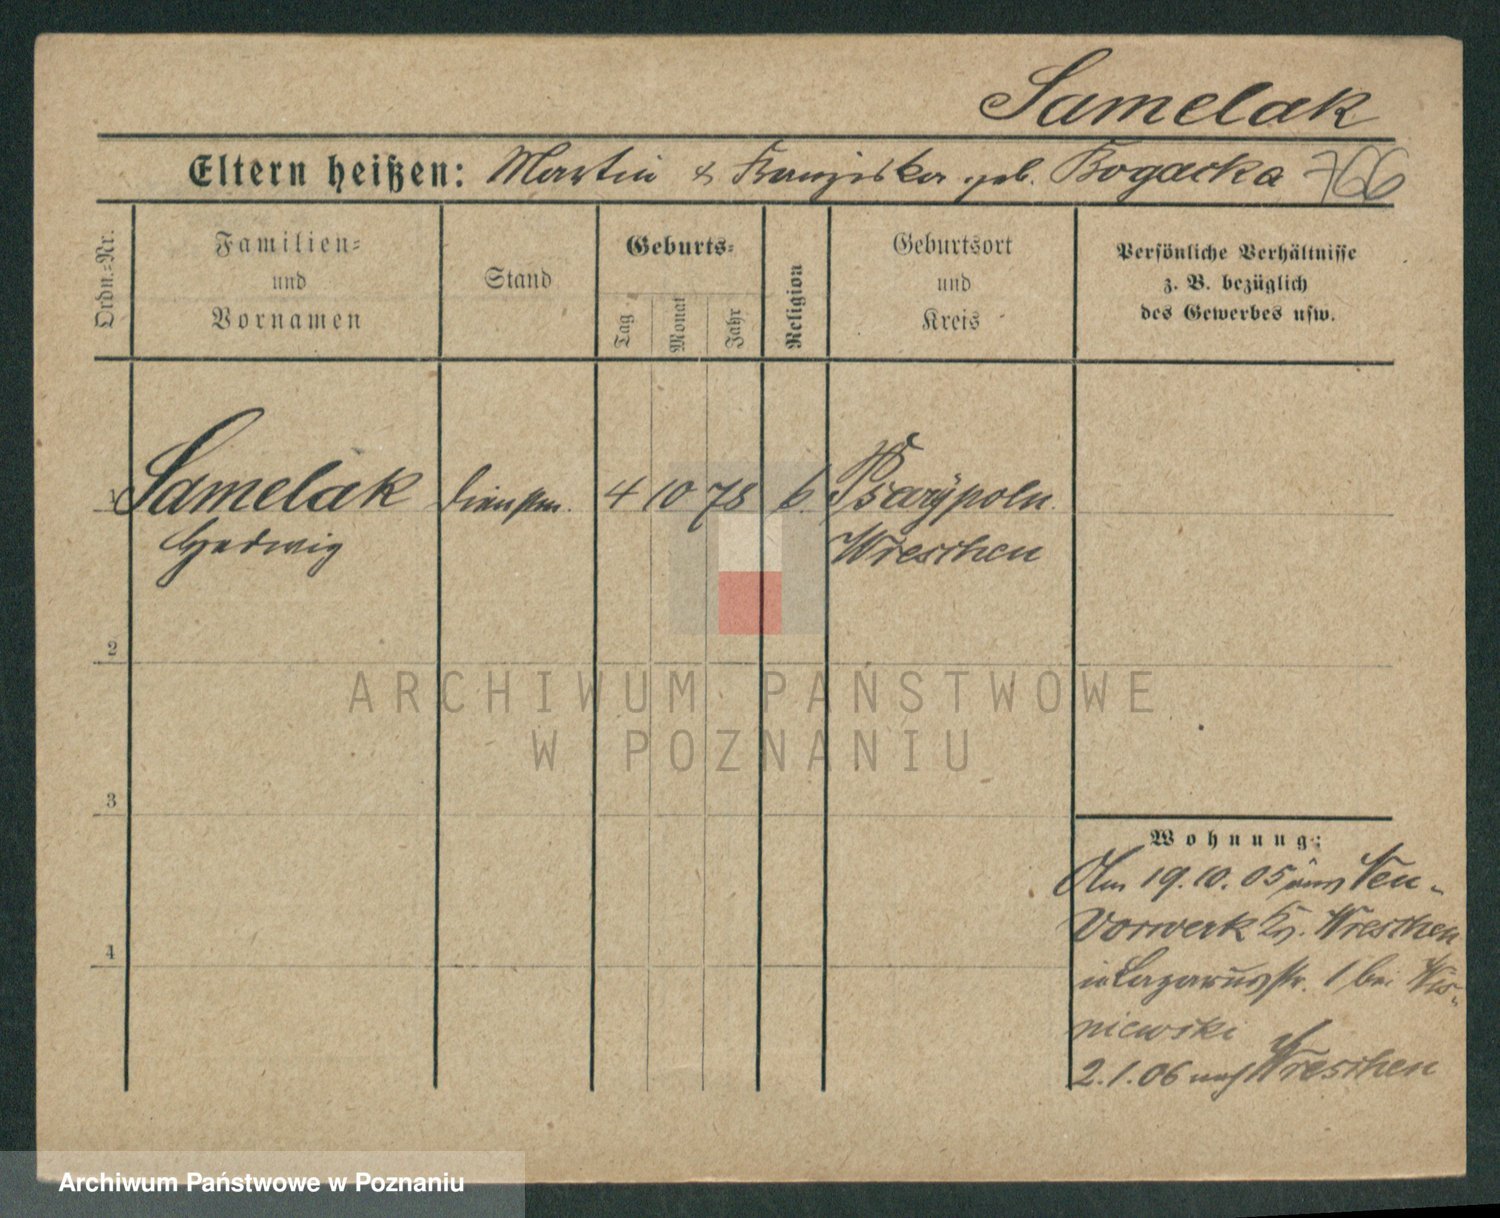 Samelak
Eltern heißen: Martin & Franziska geb. Bogacka 766
Ordn.-Nr.
Familien-
und
Vornamen
Stand
Geburts-
Tag
Monat
Jahr
Religion
Geburtsort
und
Kreis
Persönliche Verhältnisse
z. B. bezüglich
des Gewerbes usw.
1 Samelak Dienstm. 4 10 78 k. Psarypoln.
Hedwig Wreschen
2
3
4
Wohnung:
Am 19.10.05 aus Neu-
Vorwerk Kr. Wreschen
in Lazarusstr. 1 bei Wis-
niewski
2.1.06 nach Wreschen
ARCHIWUM PAŃSTWOWE
W POZNANIU
Archiwum Państwowe w Poznaniu